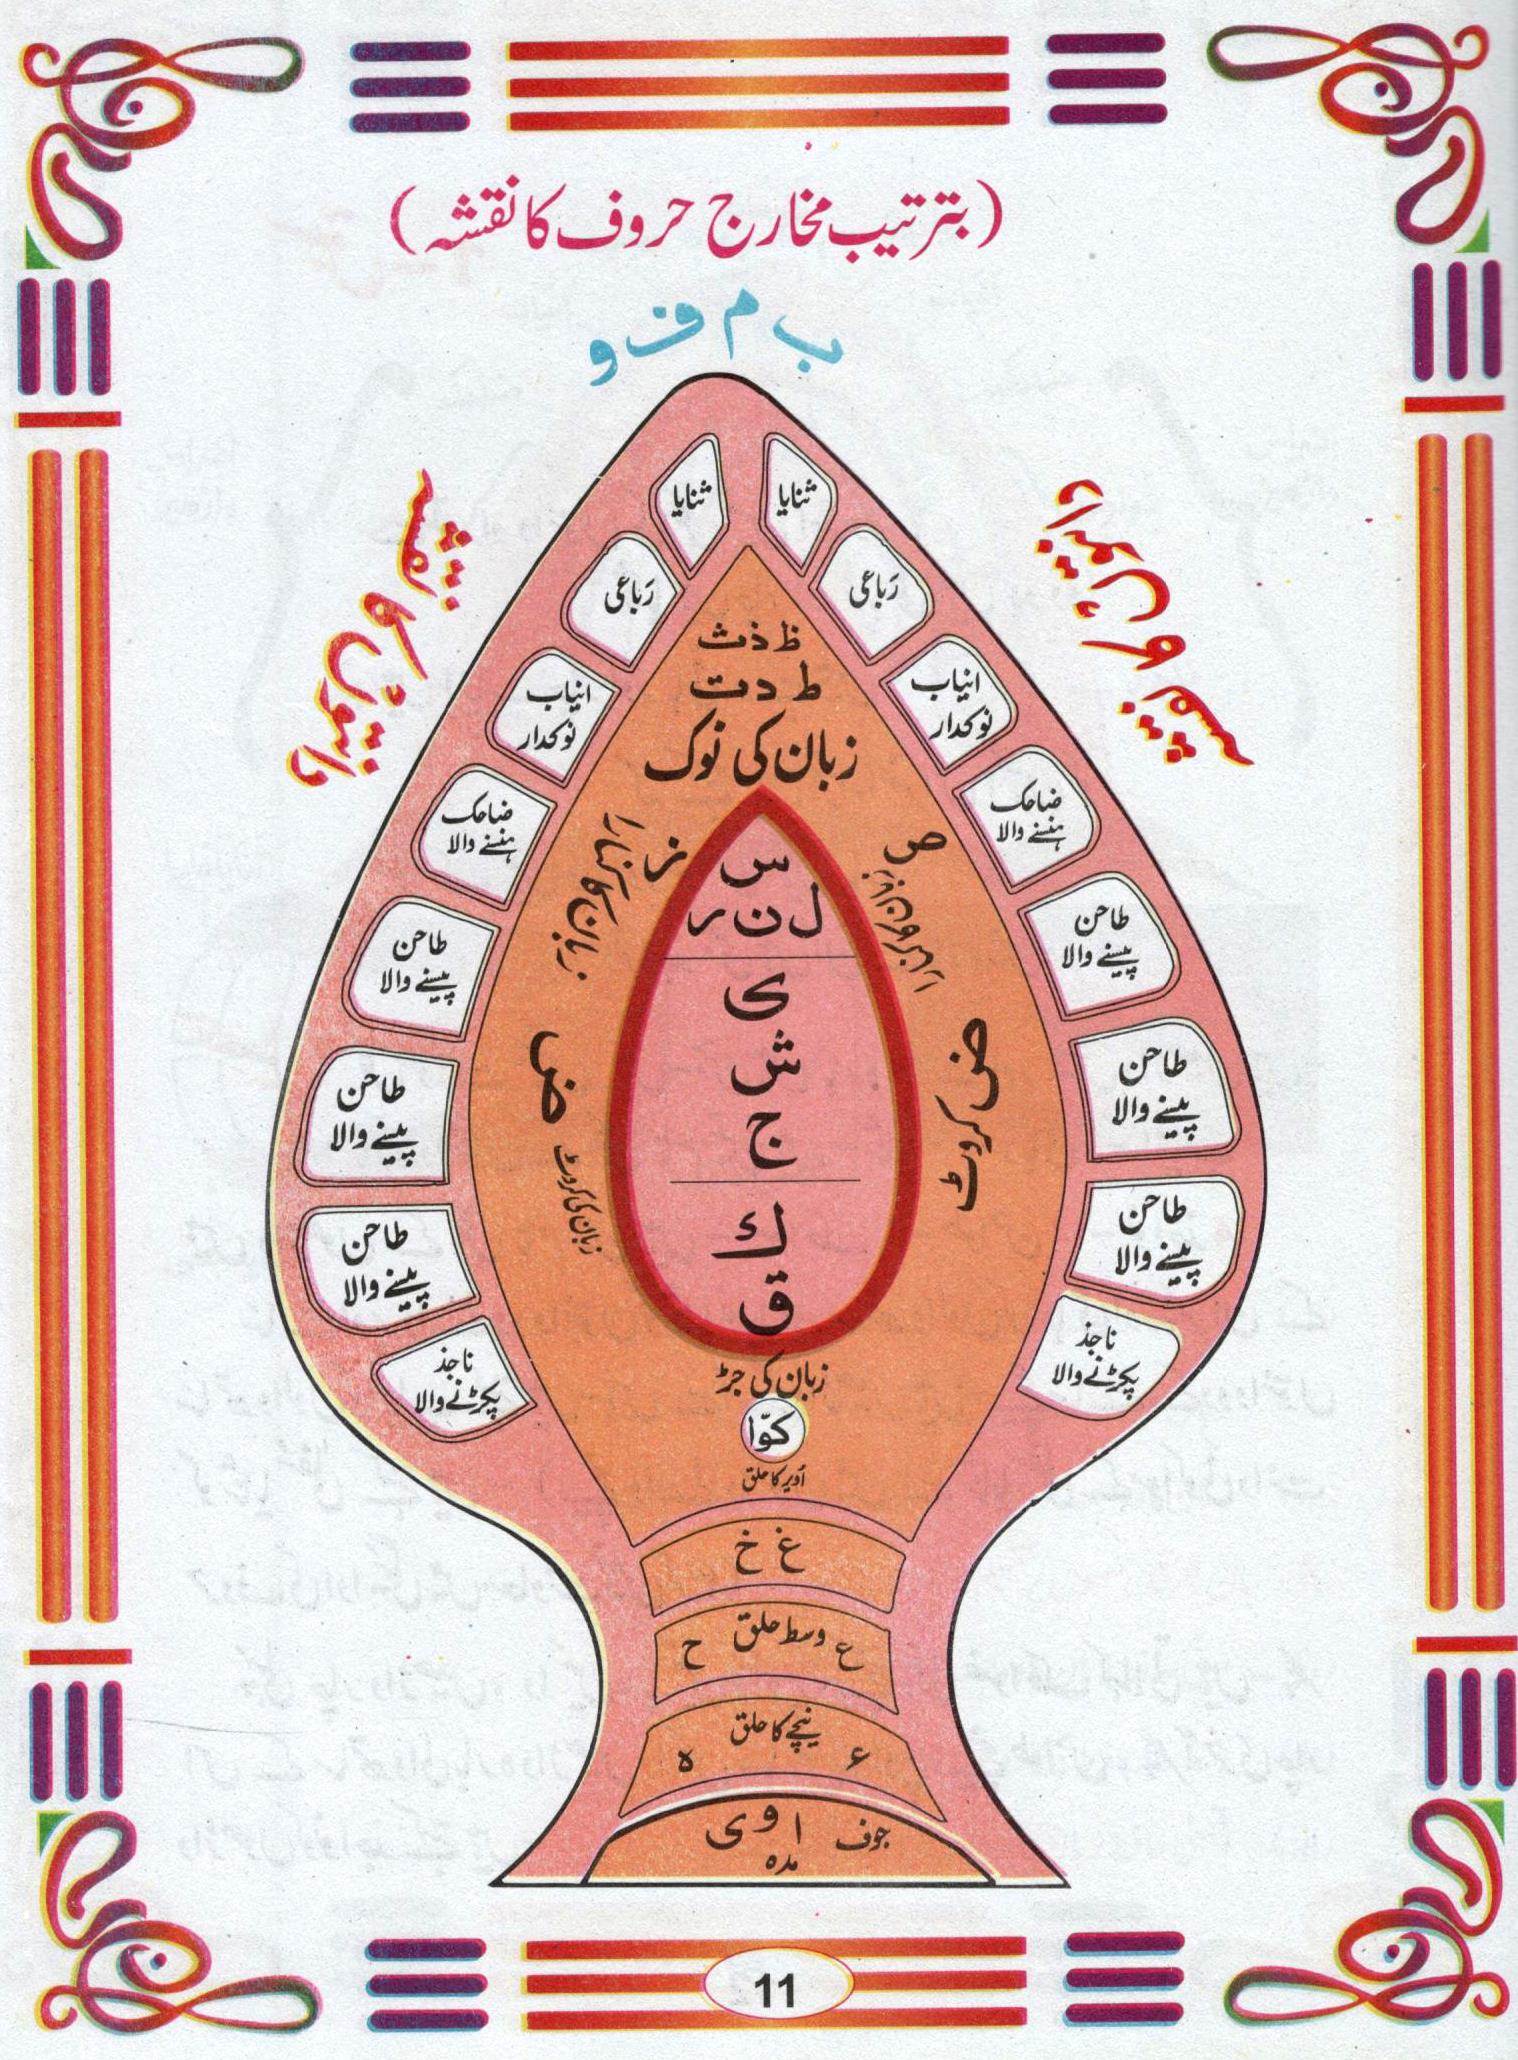 (بترتیب مخارج حروف کا نقشہ)
ب م ف و
دانتوں کا نقشہ
ثنایا
ثنایا
رَباعی
رَباعی
انیاب
نوکدار
انیاب
نوکدار
ضاحک
ہنسنے والا
ضاحک
ہنسنے والا
طاحن
پیسنے والا
طاحن
پیسنے والا
طاحن
پیسنے والا
طاحن
پیسنے والا
طاحن
پیسنے والا
طاحن
پیسنے والا
ناجذ
پکڑنے والا
ناجذ
پکڑنے والا
ظ ذ ث
ط د ت
زبان کی نوک
ص
ز
س
ل ن ر
ی
ش
ج
ك
ق
ض کروٹ
ض
زبان کی کروٹ
زبان کی جڑ
کوّا
اُوپر کا حلق
غ خ
ع وسط حلق ح
نیچے کا حلق
ء ہ
جوف ا و ی
مدہ
11